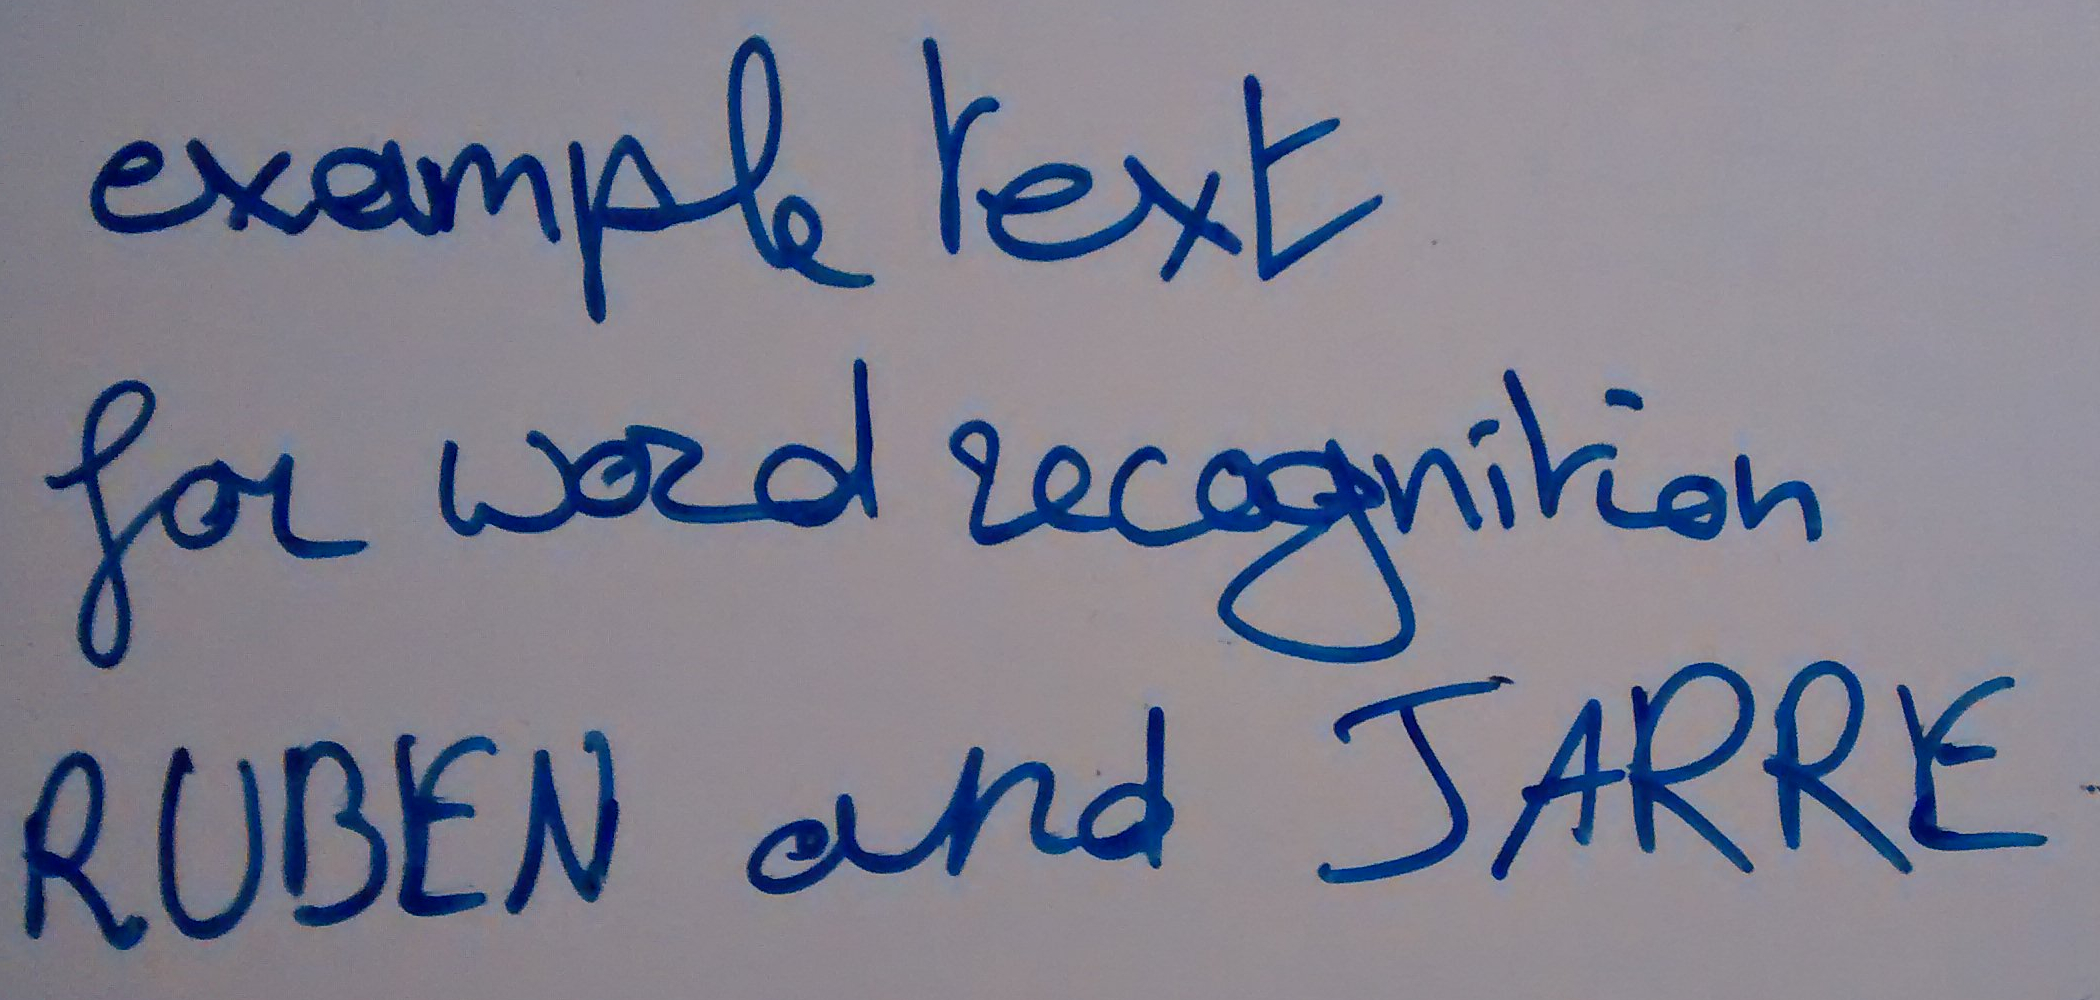 example text
for word recognition
RUBEN and JARRE